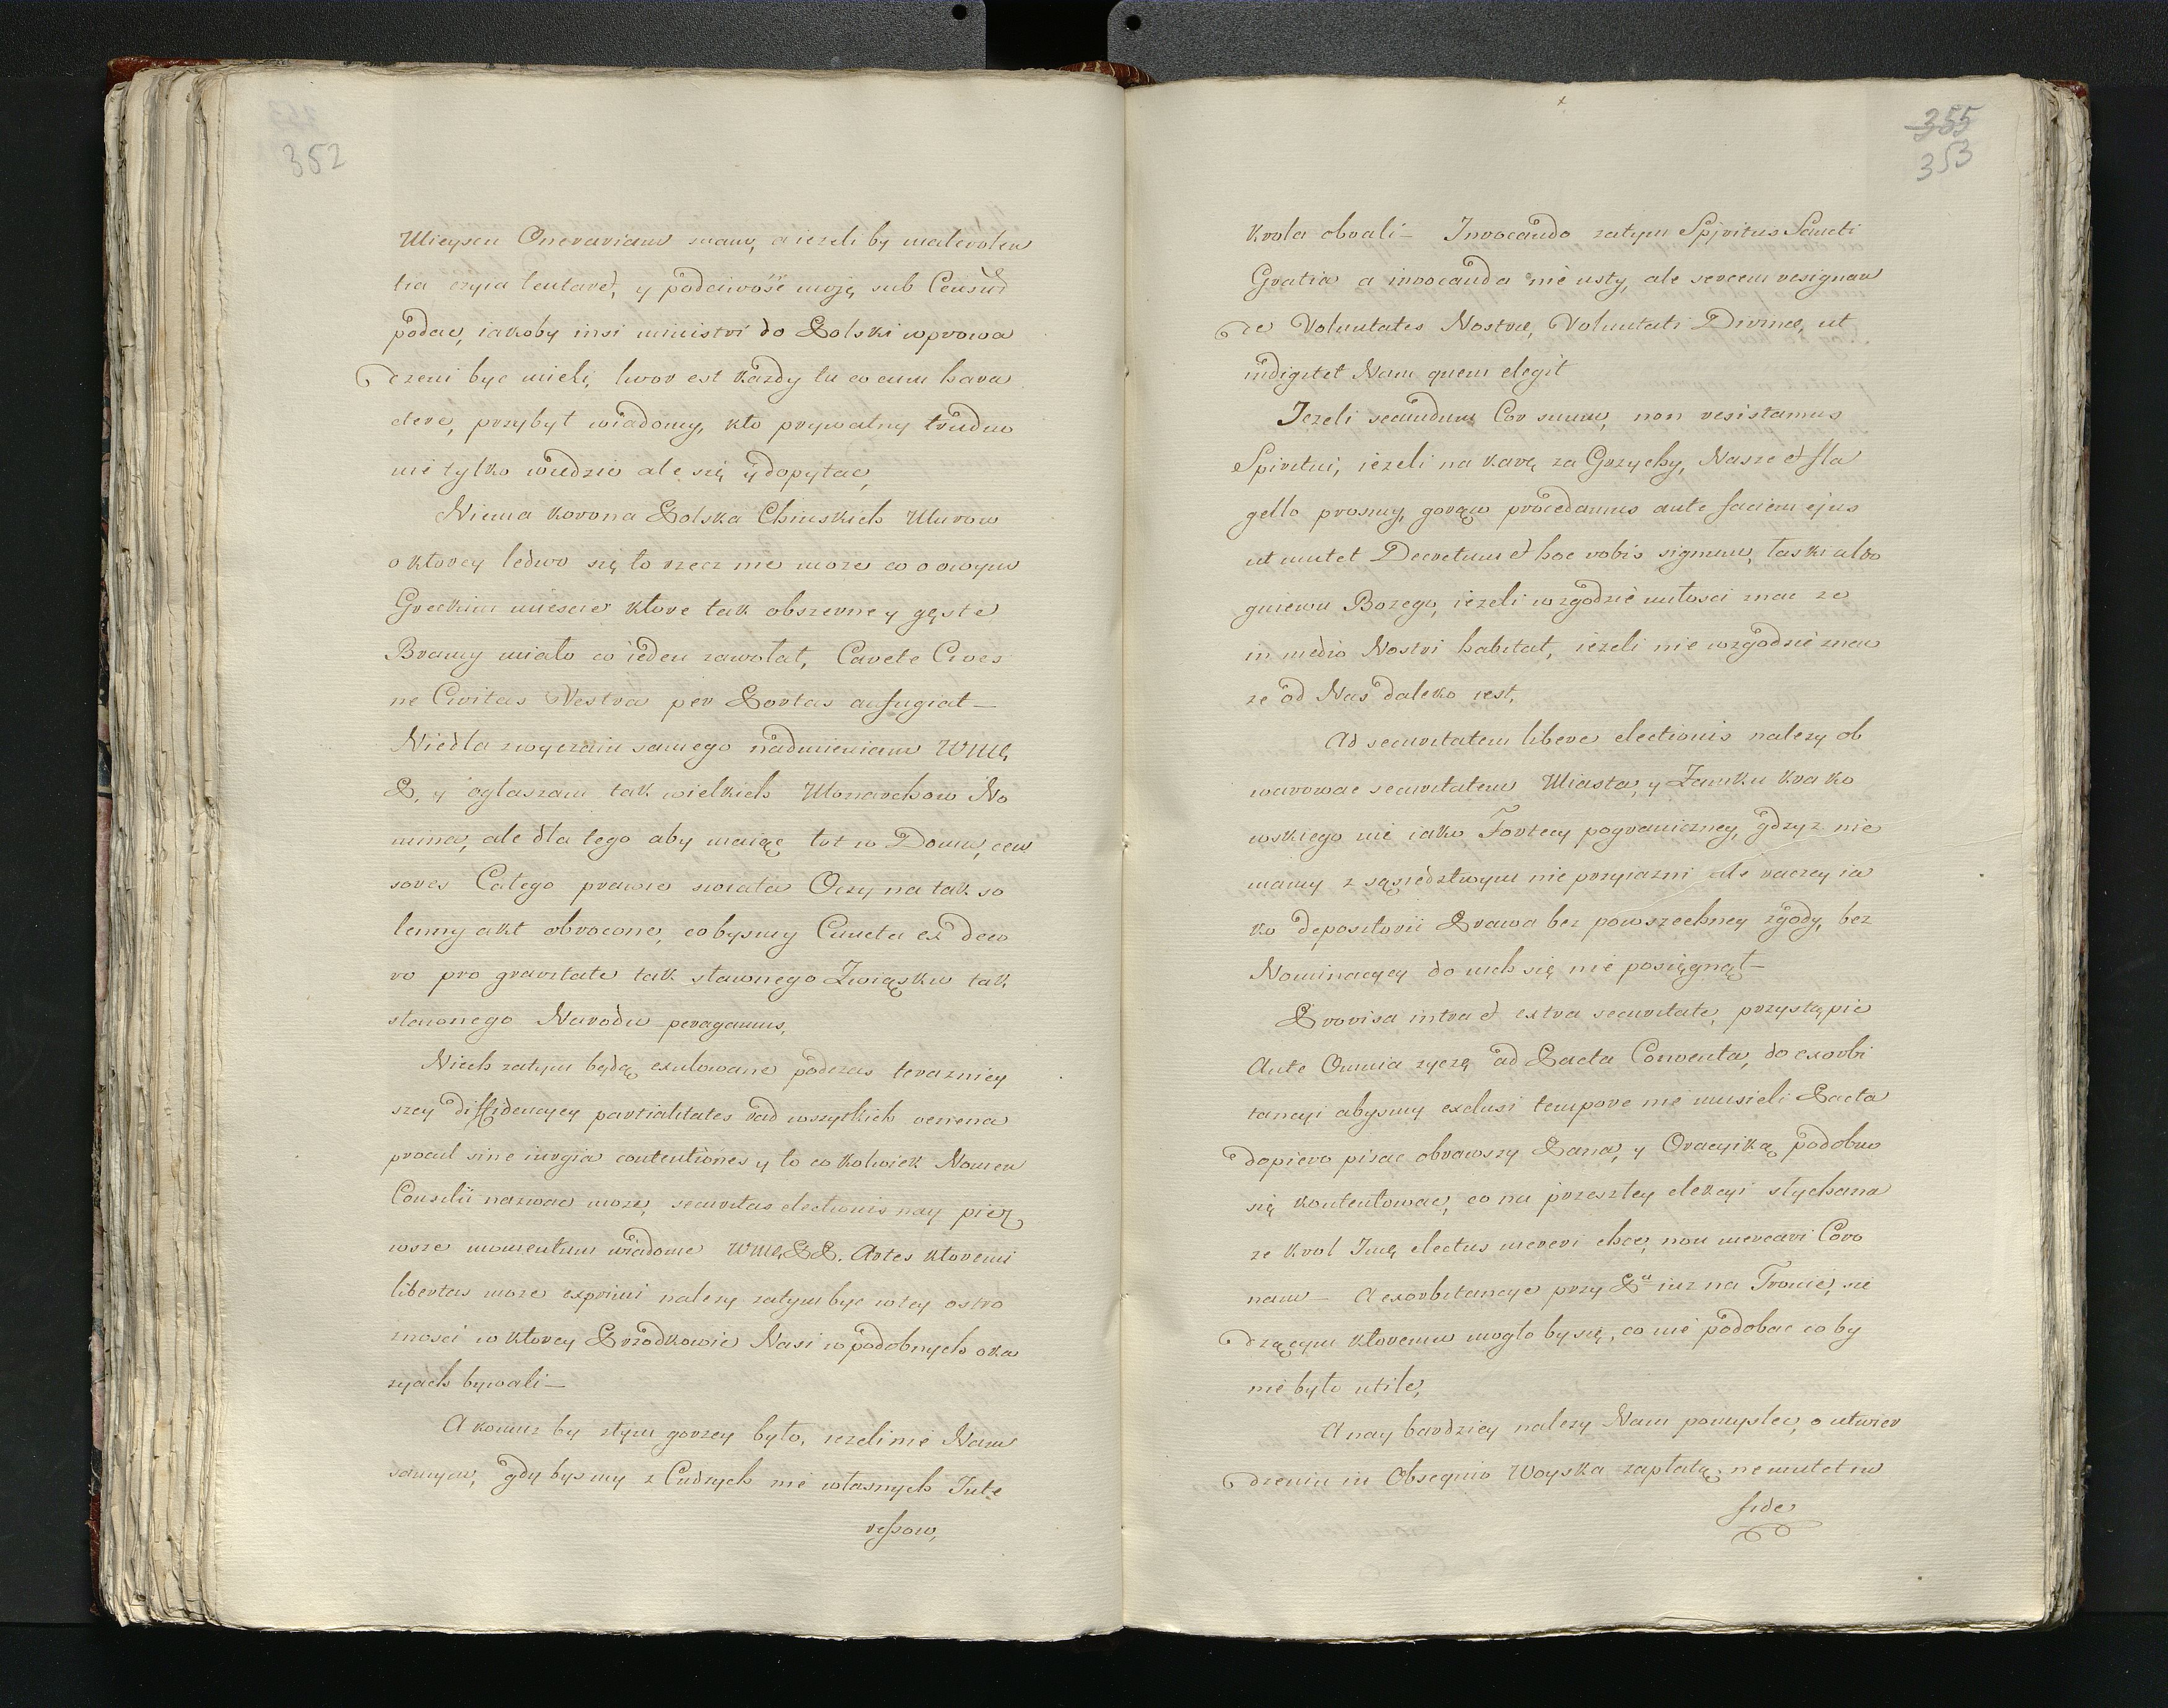 352
Mieysca Onerariam mam, a iezeli by malevolen
tia czyia tentaret, y podciwość moję sub Censur
podac, iakoby insi ministri do Polski wprowa
dzeni byc mieli, kazdy tu co cum hara
ctere, przybył wiadomy, kto prywatny trudno
nie tylko wiedzic ale się y dopytac,
Niema korona Polska Chinskich Murow
o ktorey ledwo się to rzec nie moze co o owym
Greckim miescie ktore tak obszerne y gęste
Bramy miało co ieden zawołał, Cavete Cives
ne Civitas Vestra per Portas aufugiat –
Niedla zwyczaiu samego nadmieniam WMę
P. y ogłaszam tak wielkich Monarchow No
mina, ale dla tego aby maiąc tot w Domu, cen
sores Całego prawie swiata Oczy na tak so
lenny akt obrocone, cobysmy Cuncta ex deco
ro pro gravitate tak sławnego Związku tak
sławnego Narodu peragamus,
Niech zatym będą exulowane podczas terazniey
szey diffidencyey partialitates rad wszytkich venena
procul sine iurgia contentiones y to co kolwiek Nomen
Consilii nazwac moze, securitas electionis nay pier
wsze momentum wiadome WMę PP. Artes ktoremi
libertas moze exprimi nalezy zatym byc w tey ostro
znosci w ktorey Przodkowie Nasi w podobnych oka
zyach bywali –
A komuz by ztym gorzey było, iezeli nie Nam
samym, gdy bysmy z Cudzych nie własnych Inte
ressow,
355
353
Krola obrali – Invocando zatym Spiritus Sancti
Gratia a invocanda nie usty, ale sercem resignan
do Voluntates Nostrae, Voluntati Divinae, ut
indigitet Nam quem elegit
Jezeli secundum Cor suum, non resistamus
Spiritui, iezeli na karę za Grzychy, Nasze et fla
gello prosmy, gorąco procedamus ante faciem ejus
ut mutet Decretum et hoc vobis signum, łaski albo
gniewu Bozego, iezeli w zgodzie miłosci znac ze
in medio Nostri habitat, iezeli nie w zgodzie znac
ze od Nas daleko iest,
Ad securitatem libere electionis nalezy ob
warowac securitatem Miasta, y Zamku krako
wskiego nie iako Fortecy pograniczney, gdzyz nie
mamy z sąsiedztwym nie przyiazni ale raczey ia
ko depositorii Prawa bez powszechney zgody, bez
Nominacyey do nich się nie posięgnął –
Provisa intra et extra securitate, przystąpic
Ante Omnia zyczę ad Pacta Conventa, do exorbi
tancyi abysmy exclusi tempore nie musieli Pacta
dopiero pisac obrawszy Pana, y Oracyiką podobno
się kontentowac, co na przeszłey elekcyi słychana
ze Krol Jmę electus mereri chce, non mercari Coro
nam – A exorbitancye przy Pu iuz na Tronie, sie
dzącym ktoremu mogło by się, co nie podobac co by
nie było utile,
A nay bardziey nalezy Nam pomyslec, o utwier
dzeniu in Obsequio Woyska zapłatą, ne mutet in
fide